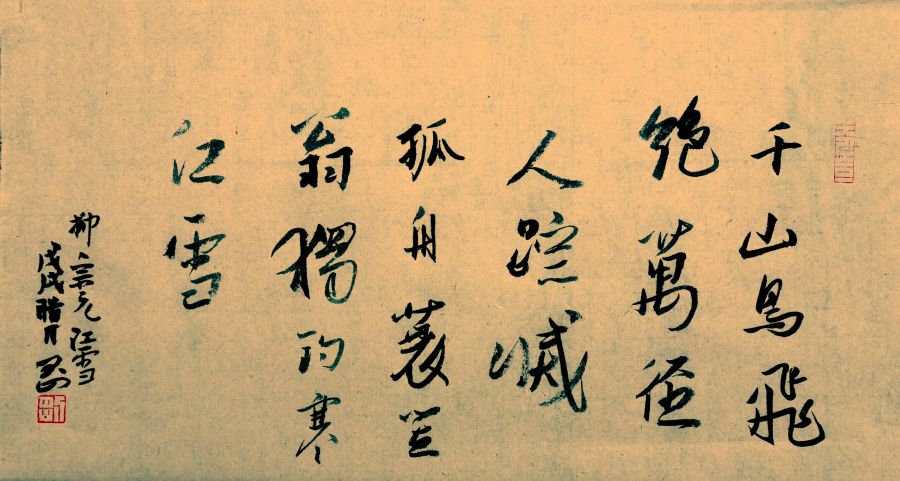 千山鳥飛
絶萬徑
人踪滅
孤舟蓑笠
翁獨釣寒
江雪
柳宗元江雪
戊戌腊月